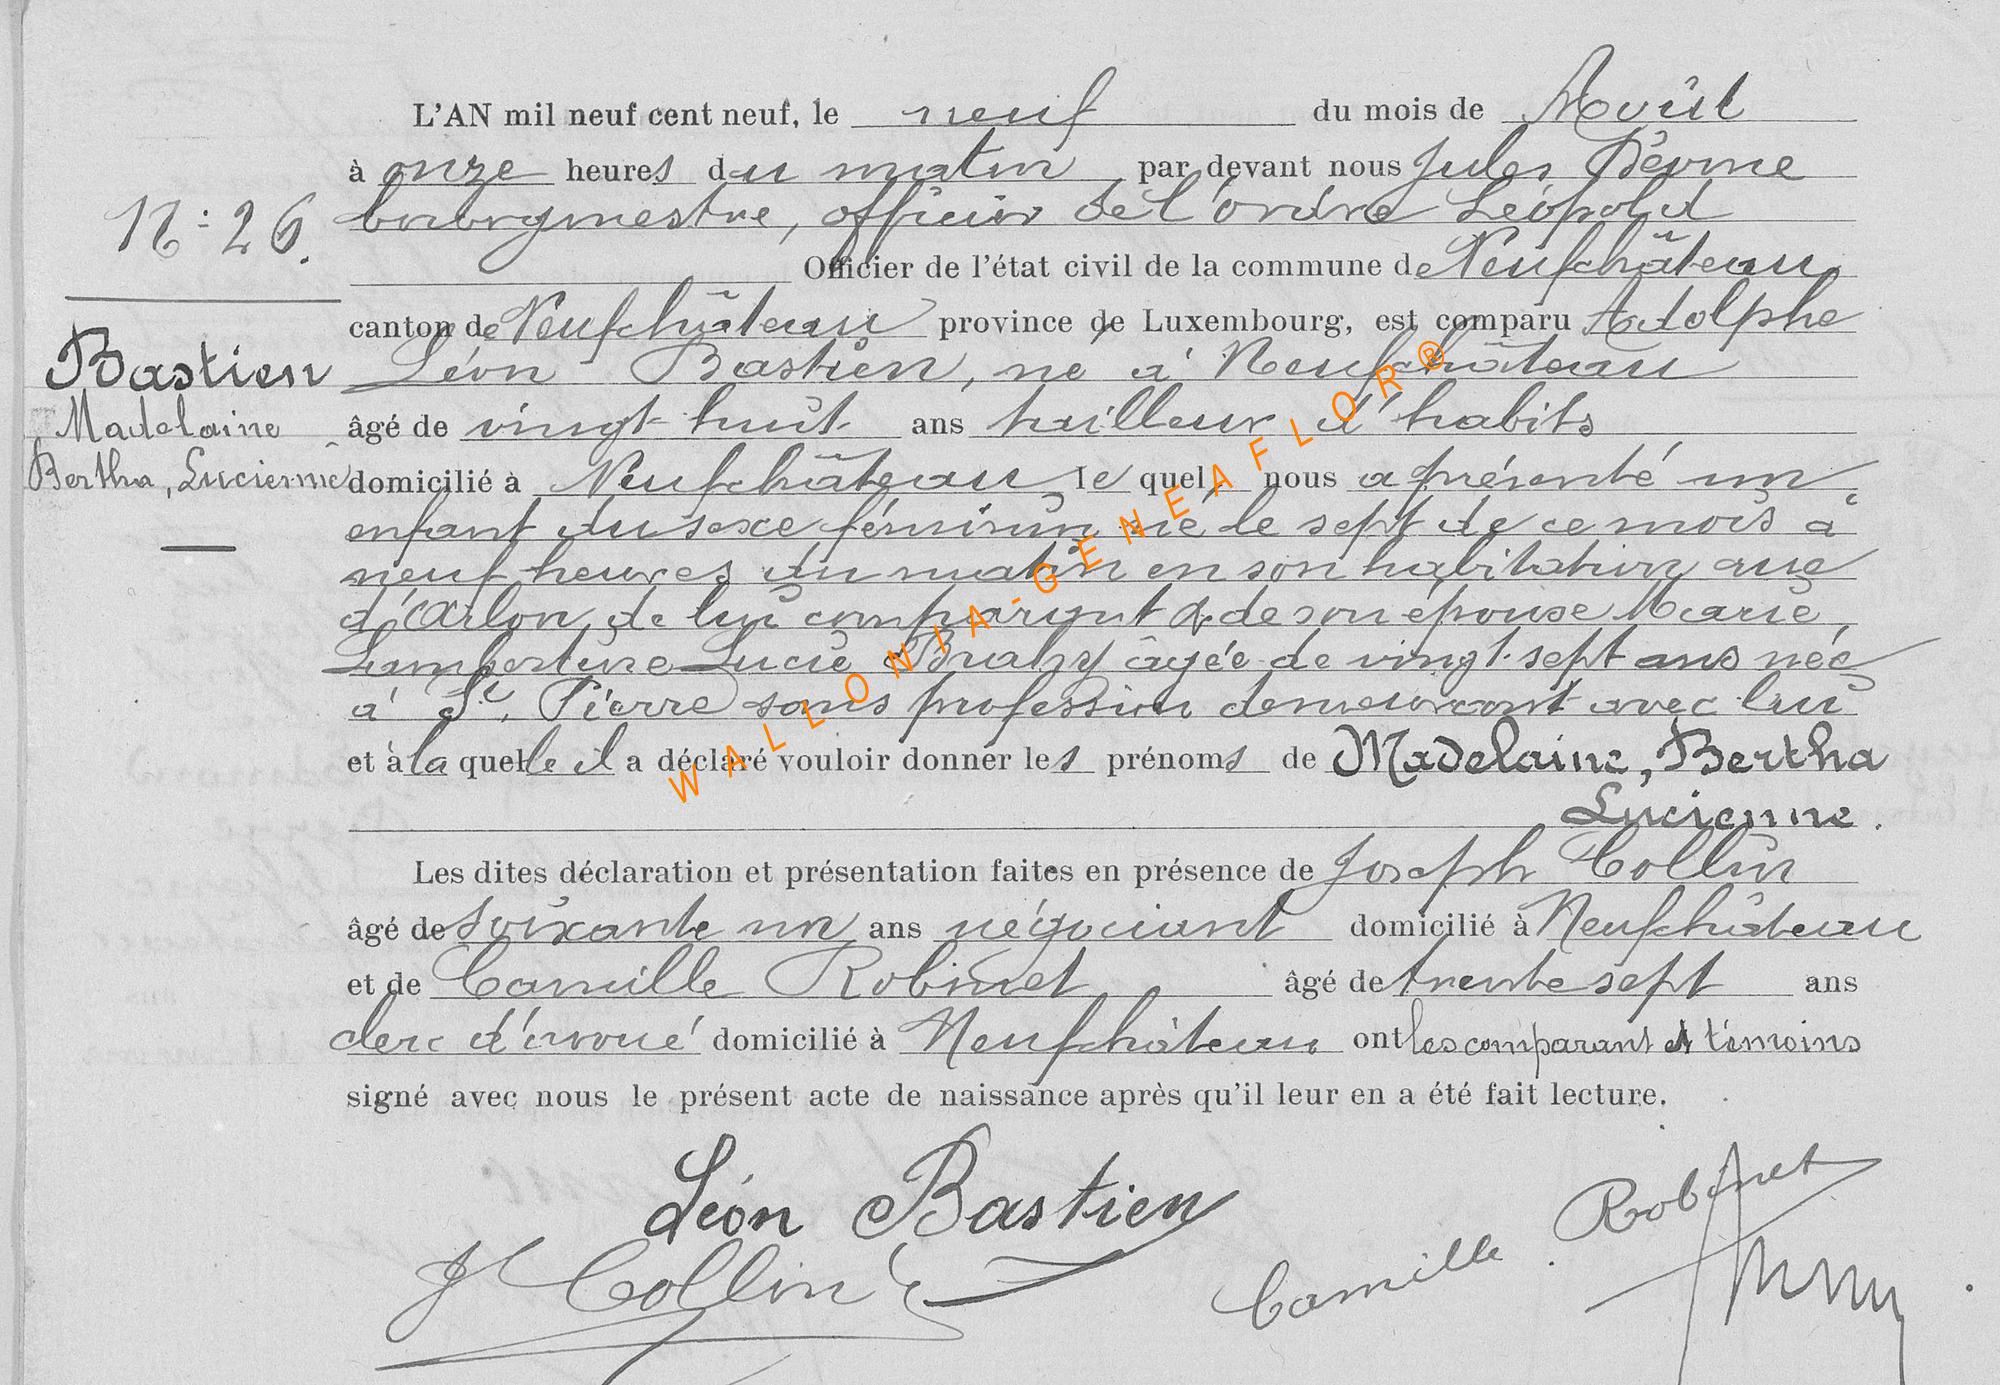 L'AN mil neuf cent neuf, le neuf du mois de Août
à onze heures du matin par devant nous Jules
N: 26.
bourgmestre, officier de l'ordre Léopold
Officier de l'état civil de la commune de Neufchâteau
canton de Neufchâteau province de Luxembourg, est comparu Adolphe
Bastien
Madelaine
Bertha, Lucienne
Léon Bastien, né à Neufchâteau
âgé de vingt huit ans tailleur d'habits
domicilié à Neufchâteau le quel nous a présenté un
enfant du sexe féminin né le sept de ce mois à
neuf heures du matin en son habitation rue
d'Arlon de lui comparant & de son épouse Marie,
Lambertine Lucie âgée de vingt-sept ans née
à St. Pierre sans profession demeurant avec lui
et à la quelle il a déclaré vouloir donner les prénoms de Madelaine, Bertha
Lucienne.
Les dites déclaration et présentation faites en présence de Joseph Collin
âgé de soixante un ans négociant domicilié à Neufchâteau
et de Camille Robinet âgé de trente sept ans
clerc d'avoué domicilié à Neufchâteau ont les comparant et témoins
signé avec nous le présent acte de naissance après qu'il leur en a été fait lecture.
Léon Bastien
J Collin
Camille Robinet
WALLONIA-GENEAFLOR®